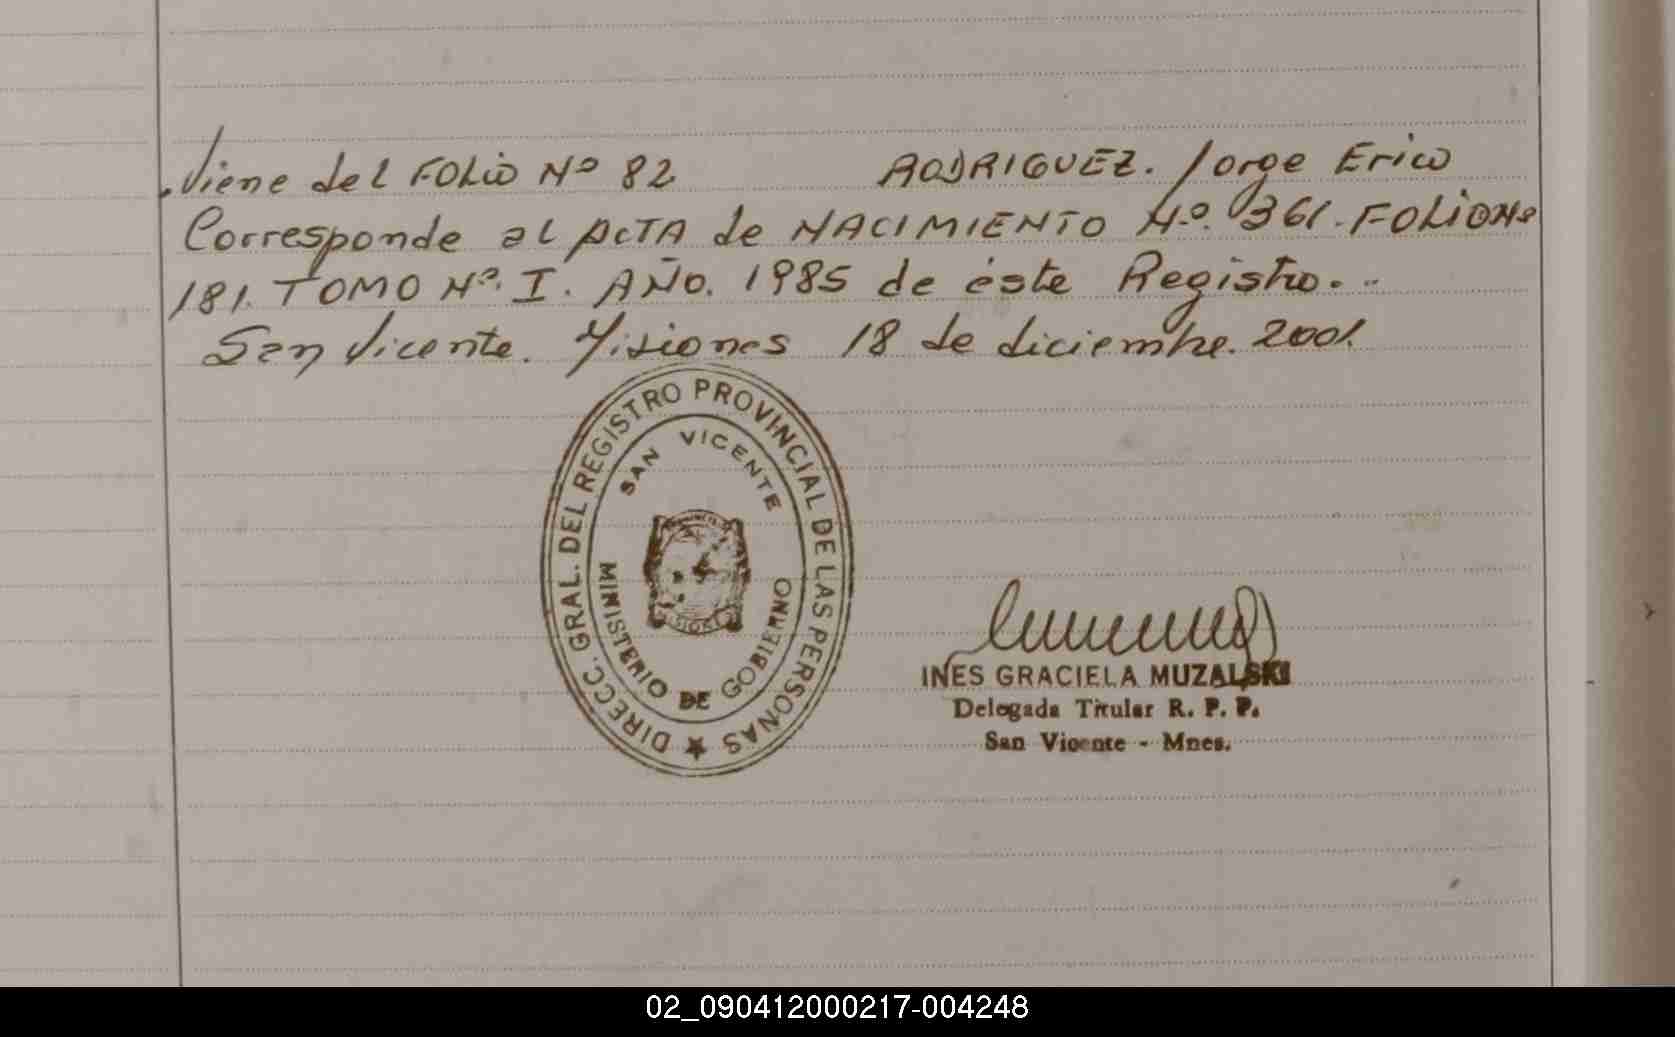 Viene del FOLIO Nº 82 RODRIGUEZ. Jorge Erico
Corresponde al ACTA de NACIMIENTO Nº. 361. FOLIO Nº
181. TOMO Nº. I. AÑO. 1985 de éste Registro. -
San Vicente. Misiones 18 de diciembre. 2001.
DIRECC. GRAL. DEL REGISTRO PROVINCIAL DE LAS PERSONAS ★
SAN VICENTE
MINISTERIO DE GOBIERNO
INES GRACIELA MUZALSKI
Delegada Titular R. P. P.
San Vicente - Mnes.
02_090412000217-004248